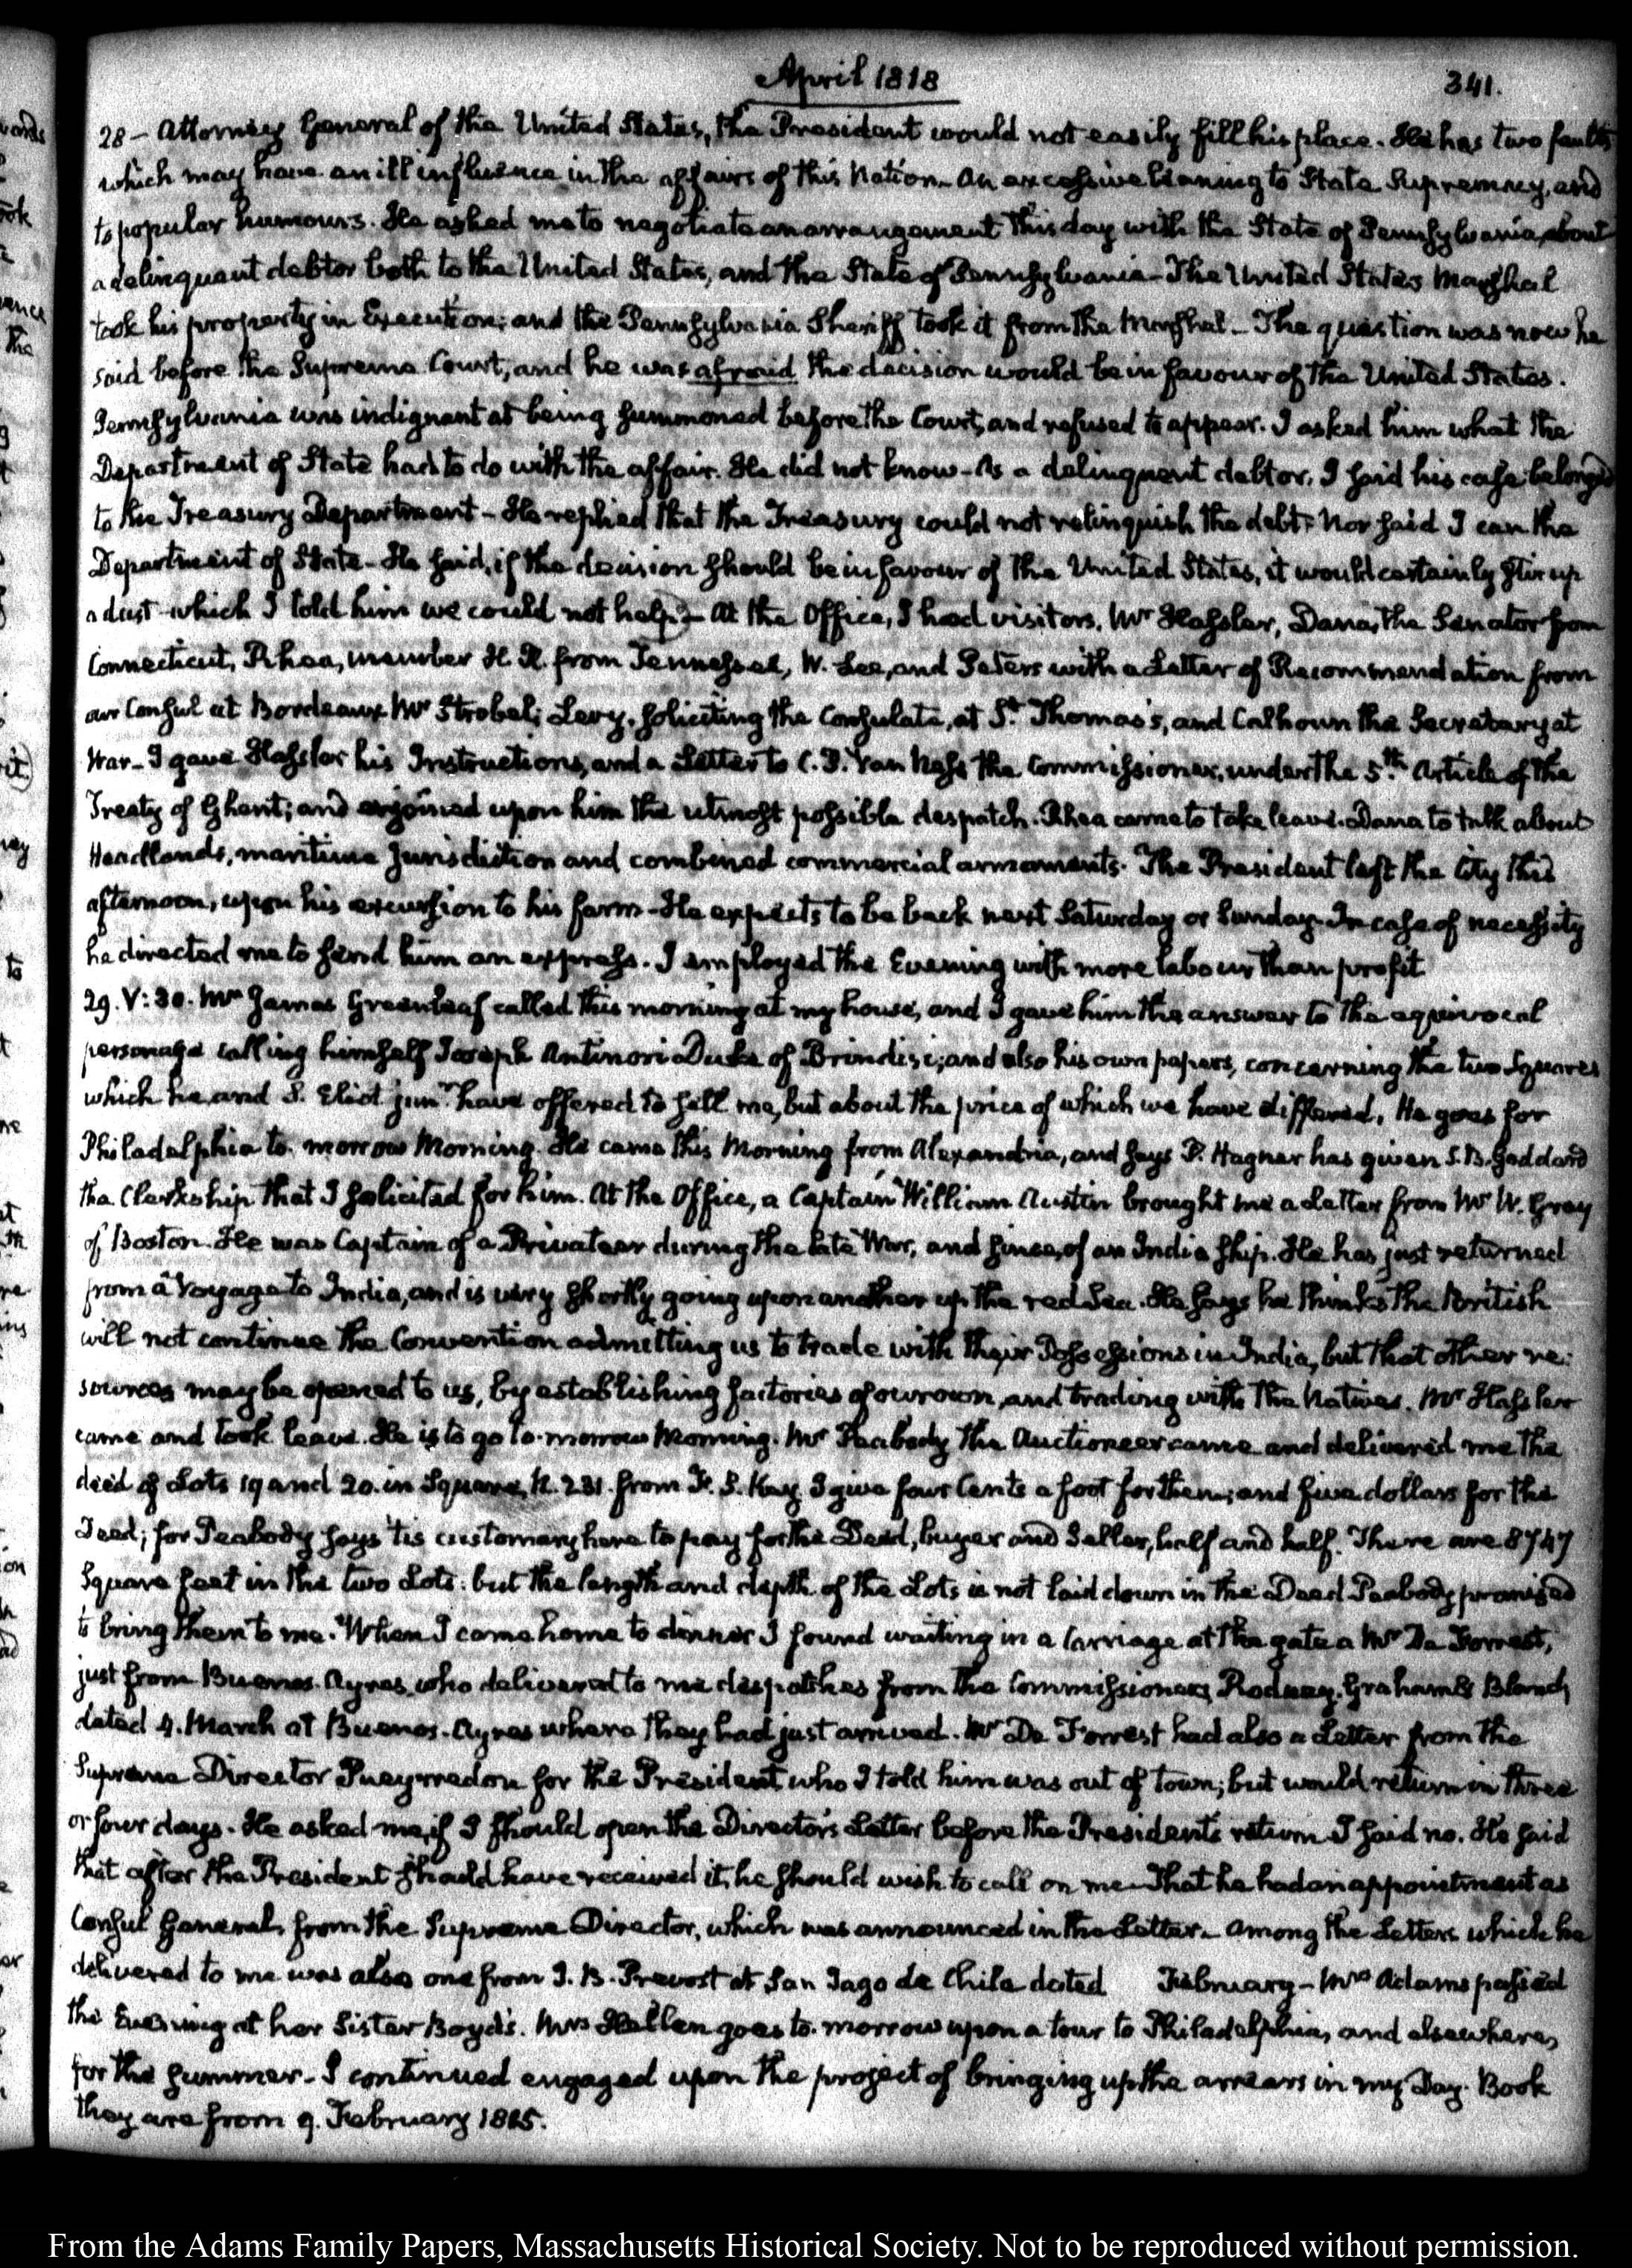 April 1818
341.
28 - Attorney General of the United States, the President would not easily fill his place. He has two faults
which may have an ill influence in the affairs of this Nation. An excessive leaning to State Supremacy, and
to popular humours. He asked me to negotiate an arrangement this day with the State of Pennsylvania, about
a delinquent debtor both to the United States, and the State of Pennsylvania - The United States Marshal
took his property in Execution; and the Pennsylvania Sheriff took it from the Marshal - The question was now he
said before the Supreme Court, and he was afraid the decision would be in favour of the United States.
Pennsylvania was indignant at being summoned before the Court, and refused to appear. I asked him what the
Department of State had to do with the affair. He did not know - As a delinquent debtor, I said his case belonged
to the Treasury Department - He replied that the Treasury could not relinquish the debt: Nor said I can the
Department of State - He said, if the decision should be in favour of the United States, it would certainly stir up
a dust - which I told him we could not help - At the Office, I had visitors, Mr Hassler, Dana, the Senator from
Connecticut, Rhea, member H. R. from Tennessee, W. Lee, and Peters with a Letter of Recommendation from
our Consul at Bordeaux Mr Strobel; Levy, soliciting the Consulate, at St. Thomas's, and Calhoun the Secretary at
War - I gave Hassler his Instructions, and a Letter to C. P. Van Ness the Commissioner, under the 5th. Article of the
Treaty of Ghent; and enjoined upon him the utmost possible despatch. Rhea came to take leave. Dana to talk about
Headlands, maritime jurisdiction and combined commercial armaments. The President left the City this
afternoon, upon his excursion to his farm - He expects to be back next Saturday or Sunday. In case of necessity
he directed me to send him an express. I employed the Evening with more labour than profit
29. V: 30. Mr James Greenleaf called this morning at my house, and I gave him the answer to the equivocal
personage calling himself Joseph Antinori Duke of Brindisi; and also his own papers, concerning the two Squares
which he and S. Eliot junr. have offered to sell me, but about the price of which we have differed. He goes for
Philadelphia to-morrow Morning. He came this Morning from Alexandria, and says P. Hagner has given S. B. Goddard
the Clerkship that I solicited for him. At the Office, a Captain William Austin brought me a Letter from Mr W. Gray
of Boston. He was Captain of a Privateer during the late War, and since, of an India ship. He has just returned
from a Voyage to India, and is very shortly going upon another up the red Sea. He says he thinks the British
will not continue the Convention admitting us to trade with their Possessions in India, but that other re-
sources may be opened to us, by establishing factories of our own, and trading with the Natives. Mr Hassler
came and took leave. He is to go to-morrow Morning. Mr Peabody the Auctioneer came and delivered me the
deed of Lots 19 and 20. in Square, N. 231. from F. S. Key. I give four Cents a foot for them; and five dollars for the
Deed; for Peabody says 'tis customary here to pay for the Deed, buyer and Seller, half and half. There are 8747
Square feet in the two Lots: but the length and depth of the Lots is not laid down in the Deed. Peabody promised
to bring them to me. When I came home to dinner I found waiting in a Carriage at the gate a Mr De Forrest,
just from Buenos-Ayres, who delivered to me despatches from the Commissioners, Rodney, Graham & Bland,
dated 4. March at Buenos-Ayres where they had just arrived. Mr De Forrest had also a Letter from the
Supreme Director Pueyrredon for the President, who I told him was out of town; but would return in three
or four days. He asked me, if I should open the Director's Letter before the President's return. I said no. He said
that after the President should have received it, he should wish to call on me - That he had an appointment as
Consul General, from the Supreme Director, which was announced in the Letter. Among the Letters which he
delivered to me was also one from J. B. Prevost at San Jago de Chile dated February - Mrs Adams passed
the Evening at her Sister Boyd's. Mrs Hellen goes to-morrow upon a tour to Philadelphia, and elsewhere,
for the summer - I continued engaged upon the project of bringing up the arrears in my Day-Book
they are from 9. February 1815.
From the Adams Family Papers, Massachusetts Historical Society. Not to be reproduced without permission.